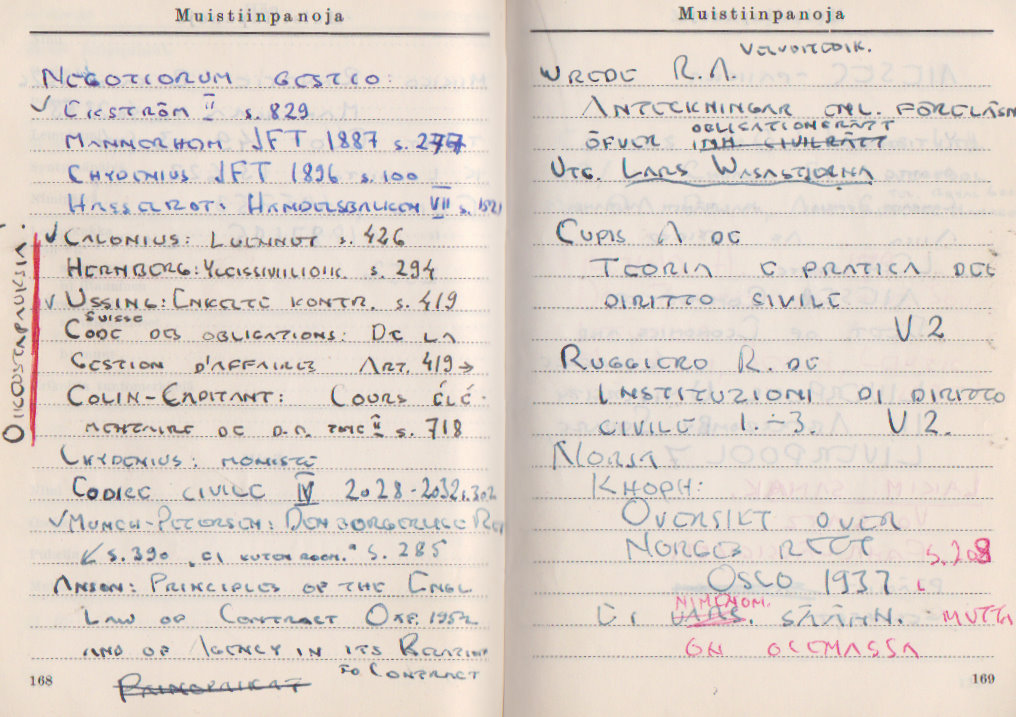 Muistiinpanoja
NEGOTIORUM GESTIO:
✓ EKSTRÖM II s. 829
MANNERHEIM JFT 1887 s. 277
CHYDENIUS JFT 1896 s. 100
HASSELROT: HANDELSBALKEN VII s. 1521
OIKEUSTAPAUKSIA!
✓ CALONIUS: LUENNOT s. 426
HERNBERG: YLEISSIVILIOIK s. 294
✓ USSING: ENKELTE KONTR. s. 419
CODE SUISSE DES OBLIGATIONS: DE LA
GESTION D'AFFAIRES ART. 419 →
COLIN-CAPITANT: COURS ÉLÉ-
MENTAIRE DE D.C. TOME II s. 718
CHYDENIUS: MONISTE
CODICE CIVILE IV 2028-2032 s. 302
✓ MUNCH-PETERSEN: DEN BORGERLIGE RET
s. 390 EI KUTEN ROOM." s. 285
ANSON: PRINCIPLES OF THE ENGL
LAW OF CONTRACT OXF. 1952
AND OF AGENCY IN ITS RELATION
TO CONTRACT
PRINCIPAIKAT
168
Muistiinpanoja
VELVOITEOIK.
WREDE R.A.
ANTECKNINGAR ENL. FÖRELÄSN
OBLIGATIONSRÄTT
ÖFVER INH. CIVILRÄTT
UTG. LARS WASASTJERNA
CUPIS A DE
TEORIA E PRATICA DEL
DIRITTO SIVILE
V.2
RUGGIERO R. DE
INSTITUZIONI DI DIRITTO
CIVILE 1.÷3. V2.
NORJA
KNOPH:
OVERSIKT OVER
NORGES RETT s. 208
OSLO 1937
NIMENOM.
EI VARS. SÄÄNN. MUTTA
ON OLEMASSA
169